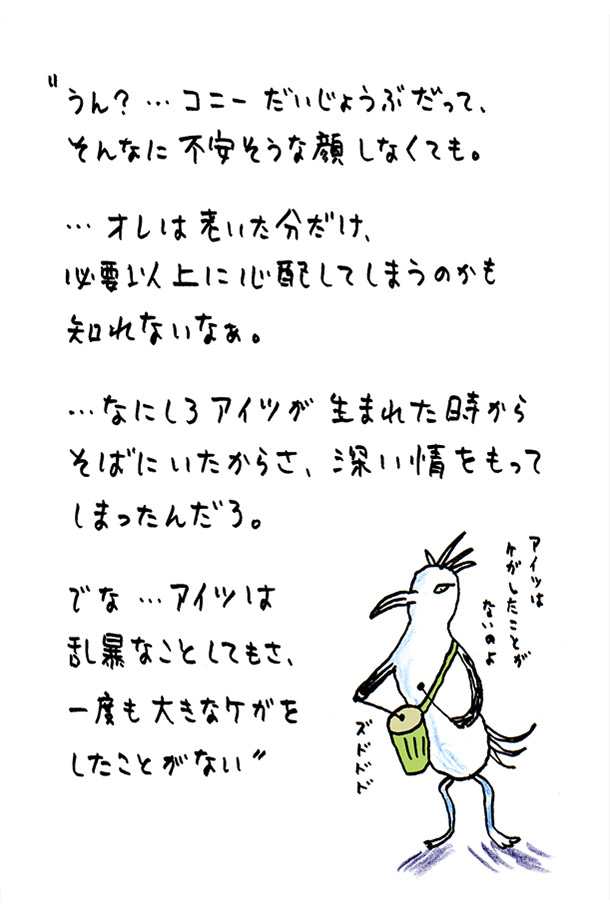 〝うん?… コニー だいじょうぶだって、
そんなに 不安そうな顔 しなくても。
… オレは 老いた分だけ、
必要以上に心配してしまうのかも
知れないなぁ。
…なにしろ アイツが 生まれた時から
そばにいたからさ、深い情をもって
しまったんだろ。
でな …アイツは
乱暴なことしてもさ、
一度も大きなケガを
したことがない〟
アイツは
ケガしたことが
ないのよ
ズドドドド